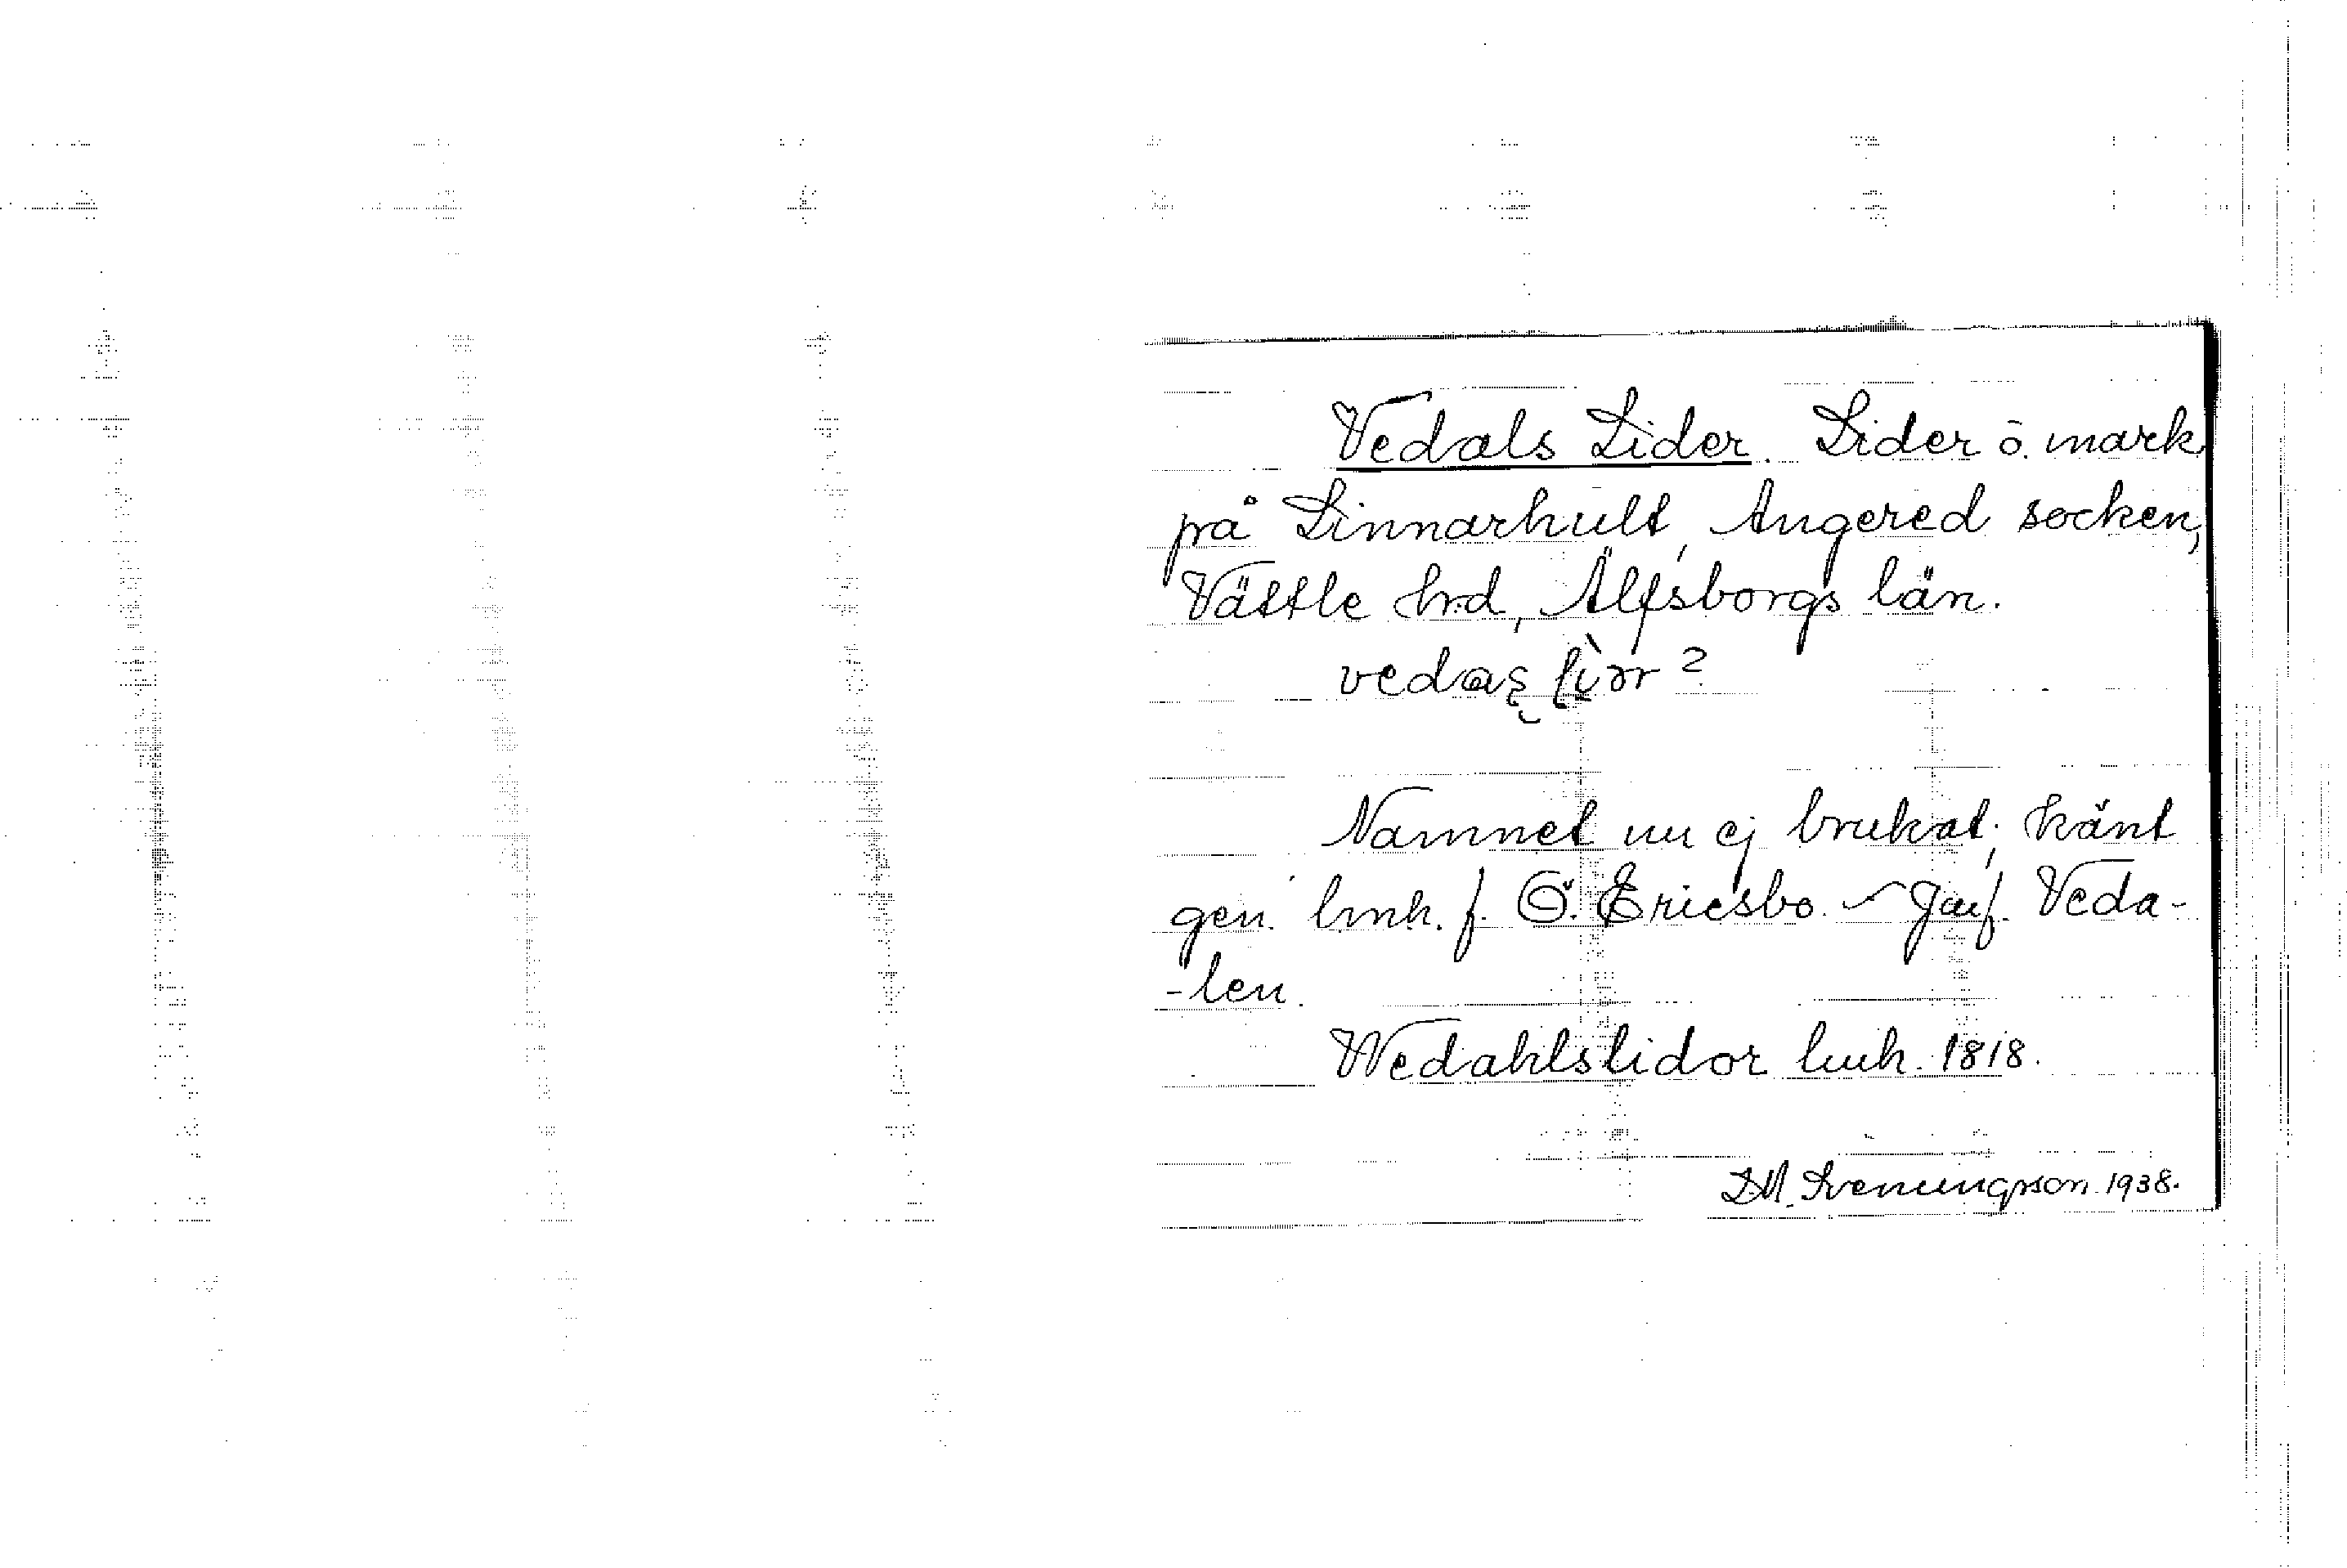 Vedals Lider. Lider ö. mark
på Linnarhult, Angered socken,
Vättle hrd, Älfsborgs län.
Namnet nu ej brukat; känt
gen. lmk. f. Ö. Ericsbo. – Jmf. Veda-
-len.
Wedahlslidor lmk. 1818.
D.M. Svenungsson 1938.